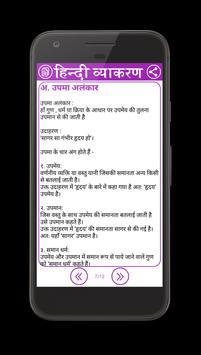 हिन्दी व्याकरण
अ. उपमा अलंकार
उपमा अलंकार :
हाँ गुण , धर्म या क्रिया के आधार पर उपमेय की तुलना
उपमान से की जाती है
उदाहरण :
'सागर सा गंभीर हृदय हो'।
उपमा के चार अंग होते हैं -
१. उपमेय:
वर्णनीय व्यक्ति या वस्तु यानी जिसकी समानता अन्य किसी
से बतलाई जाती है।
उक्त उदाहरण में 'हृदय' के बारे में कहा गया है अतः 'हृदय'
उपमेय है।
२. उपमान:
जिस वस्तु के साथ उपमेय की समानता बतलाई जाती है
उसे उपमान कहते हैं।
उक्त उदाहरण में 'हृदय' की समानता सागर से की गई है।
अतः यहाँ 'सागर' उपमान है।
३. समान धर्म:
उपमेय और उपमान में समान रूप से पाये जाने वाले गुण
को 'समान धर्म' कहते हैं।
7/12